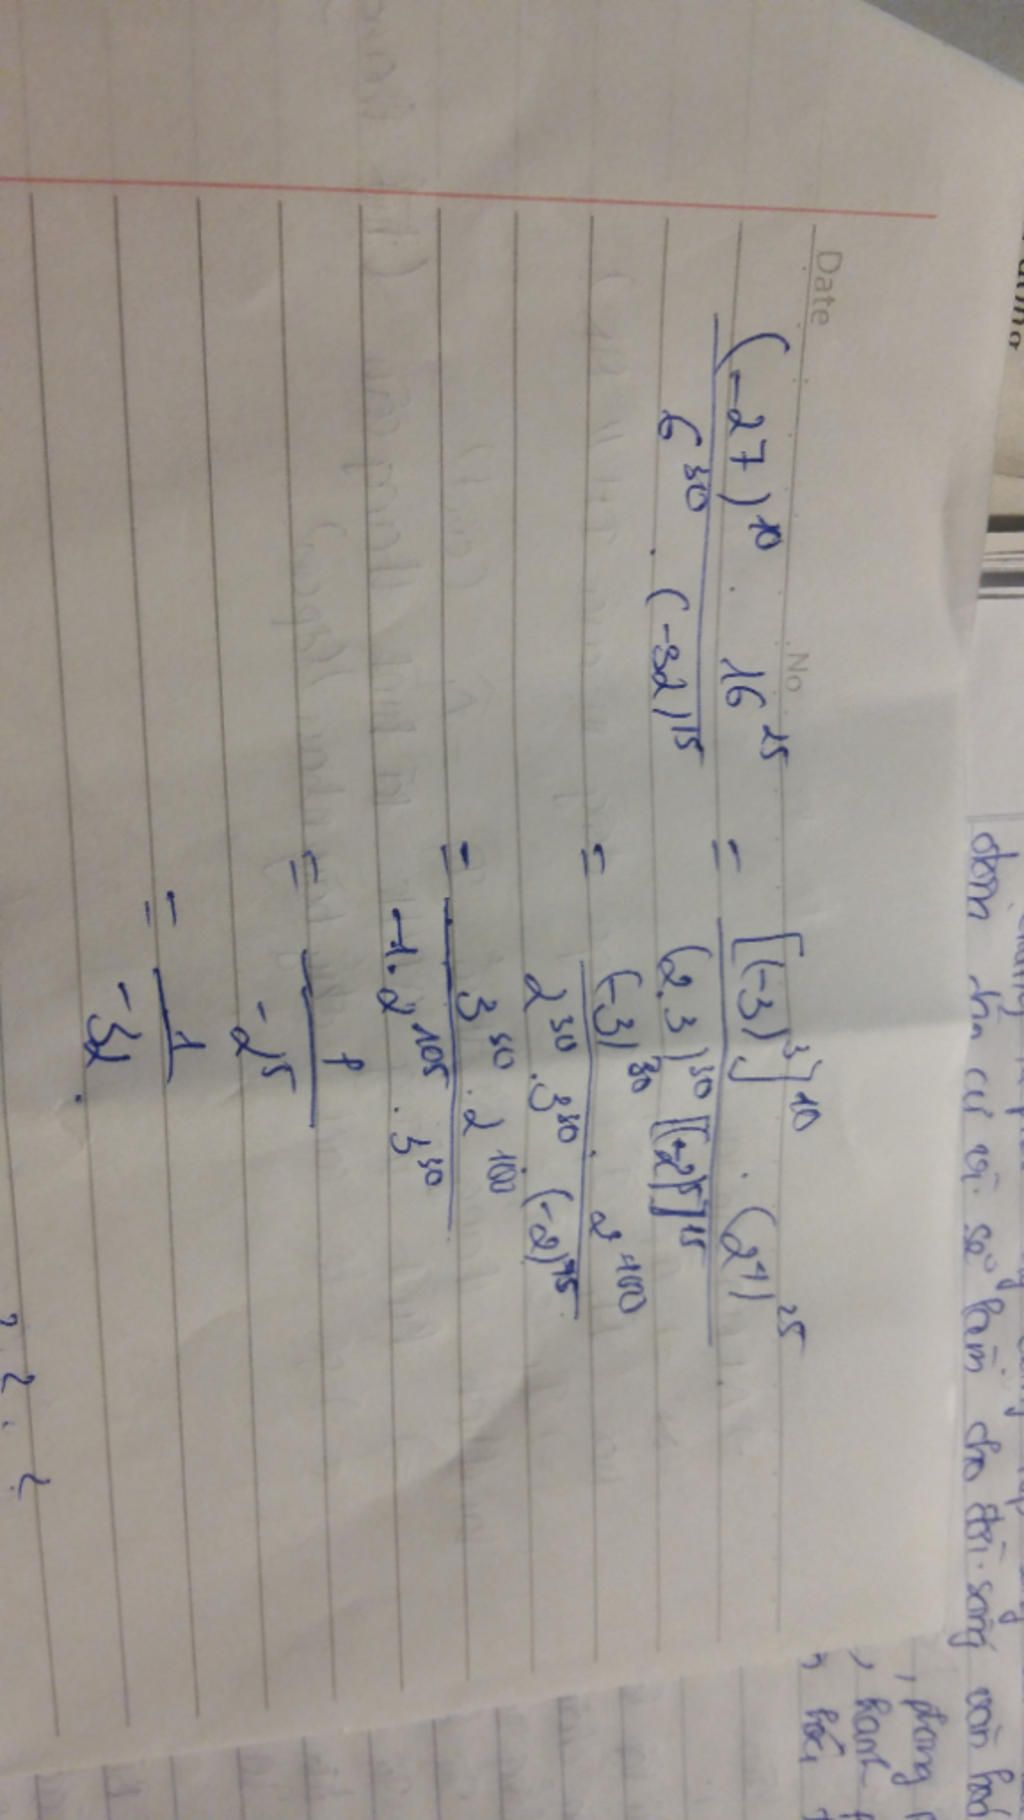 Date No
(-27)^10 . 16^25 / 6^30 . (-32)^15 = [(-3)^3]^10 . (2^4)^25 / (2.3)^30 [(-2)^5]^15
= (-3)^30 . 2^100 / 2^30 . 3^30 . (-2)^75
= 3^30 . 2^100 / -1. 2^105 . 3^30
= 1 / -2^5
= 1 / -32 .
đơn
sẽ làm cho đời sống văn hoá
, phong